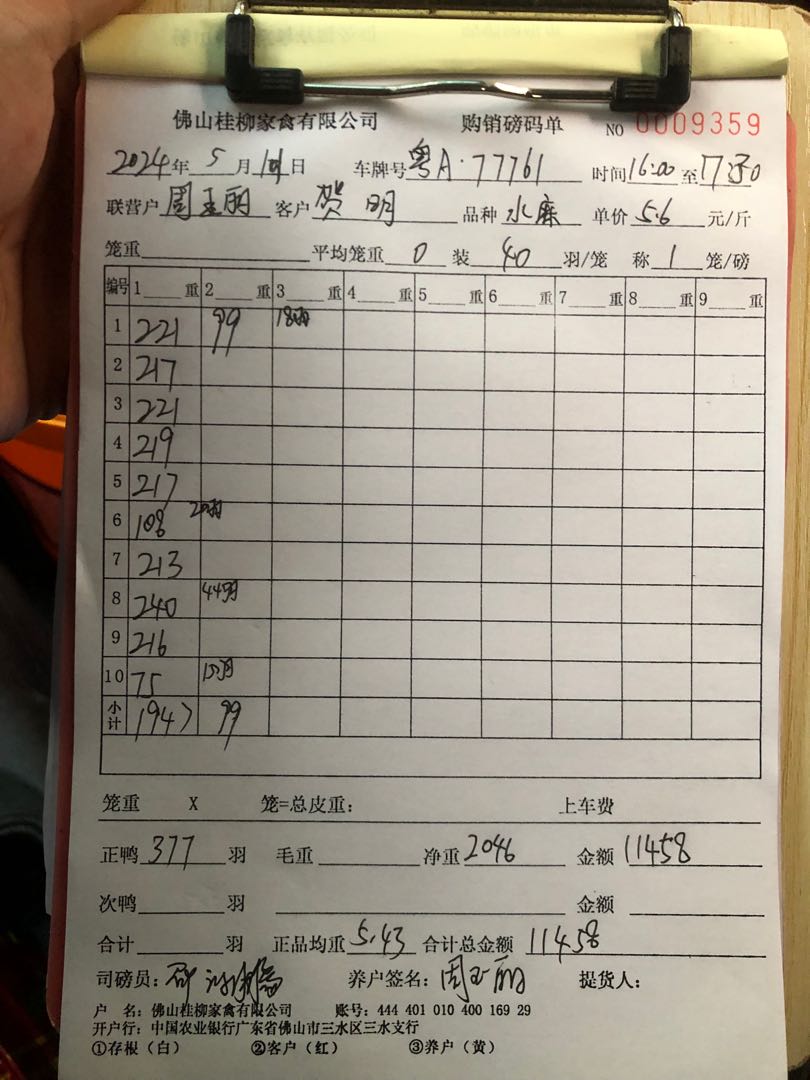 佛山桂柳家禽有限公司 购销磅码单 NO 0009359
2024年 5 月 日 车牌号 粤A·77761 时间 16:00 至
联营户 周玉丽 客户 贺明 品种 水麻 单价 5.6 元/斤
笼重 平均笼重 0 装 40 羽/笼 称 1 笼/磅
编号 1 重 2 重 3 重 4 重 5 重 6 重 7 重 8 重 9 重
1 221 99 18羽
2 217
3 221
4 219
5 217
6 108 20羽
7 213
8 240 44羽
9 216
10 75 15羽
小计 1947 99
笼重 X 笼=总皮重: 上车费
正鸭 377 羽 毛重 净重 2046 金额 11458
次鸭 羽 金额
合计 羽 正品均重 5.43 合计总金额 11458
司磅员: 养户签名: 周玉丽 提货人:
户 名: 佛山桂柳家禽有限公司 账号: 444 401 010 400 169 29
开户行: 中国农业银行广东省佛山市三水区三水支行
①存根(白) ②客户(红) ③养户(黄)